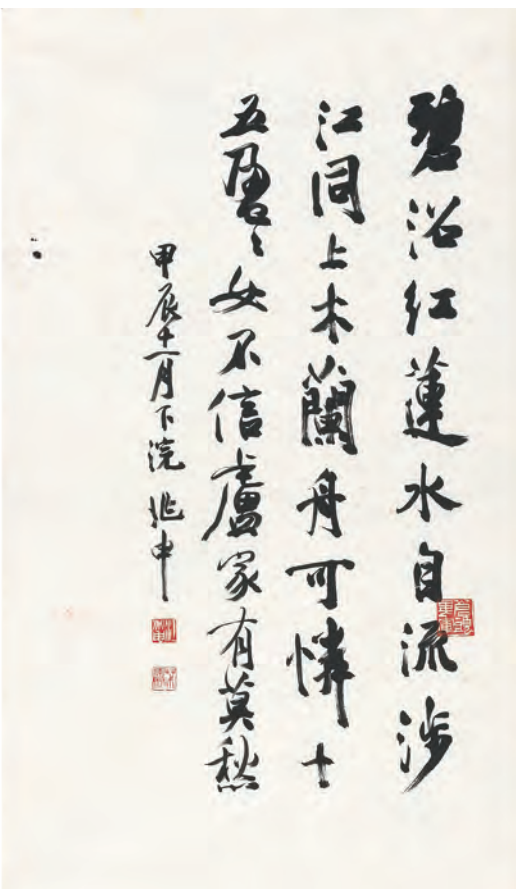 碧沼紅蓮水自流涉
江同上木蘭舟可憐十
五盈〻女不信盧家有莫愁
甲辰十一月下浣兆申